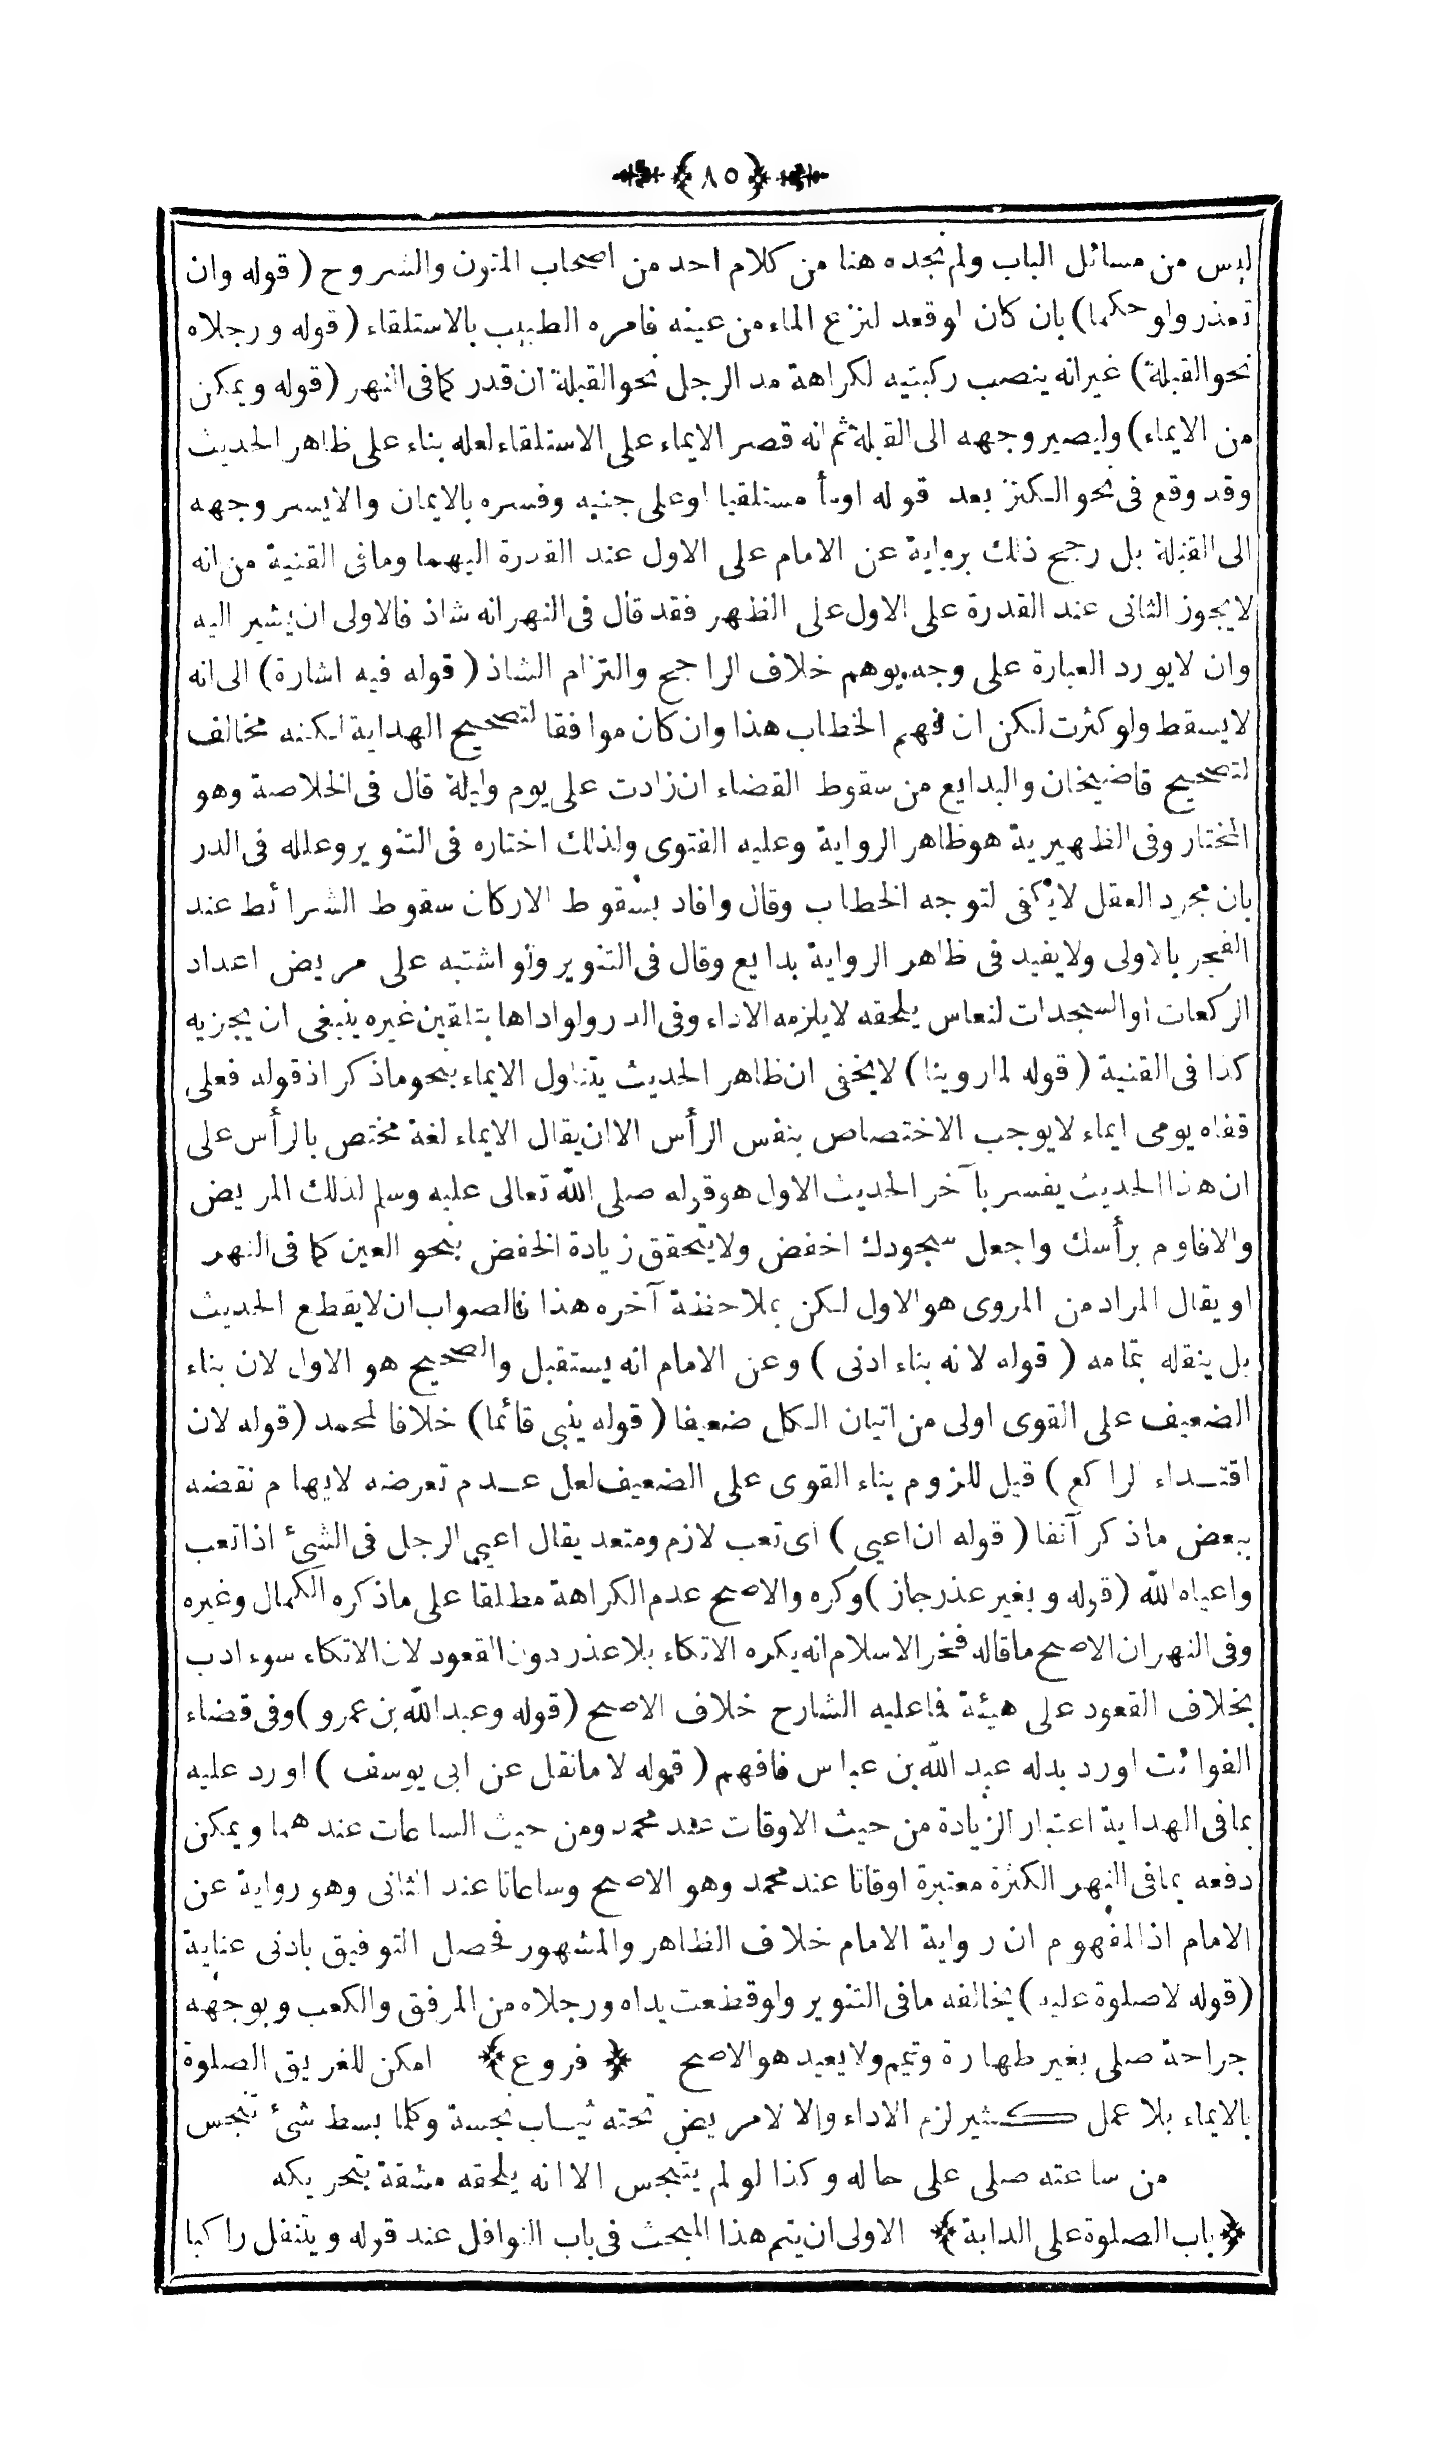 ﴿ ٨٥ ﴾
ليس من مسائل الباب ولم نجده هنا من كلام احد من اصحاب المتون والشروح ( قوله وان
تعذر ولو حكما) بان كان لوقعد لنزع الماء من عينه فامره الطبيب بالاستلقاء ( قوله ورجلاه
نحو القبلة) غيرانه ينصب ركبتيه لكراهة مد الرجل نحو القبلة ان قدر كما فى النهر (قوله ويمكن
من الايماء) وليصير وجهه الى القبلة ثم انه قصر الايماء على الاستلقاء لعله بناء على ظاهر الحديث
وقد وقع فى نحو الكنز بعد قوله اومأ مستلقيا اوعلى جنبه وفسره بالايمان والايسر وجهه
الى القبلة بل رجح ذلك برواية عن الامام على الاول عند القدرة اليهما ومافى القنية من انه
لايجوز الثانى عند القدرة على الاول على الظهر فقد قال فى النهر انه شاذ فالاولى ان يشير اليه
وان لايورد العبارة على وجه يوهم خلاف الراجح والتزام الشاذ ( قوله فيه اشارة) الى انه
لايسقط ولو كثرت لكن ان فهم الخطاب هذا وان كان موافقا لتصحيح الهداية لكنه مخالف
لتصحيح قاضيخان والبدايع من سقوط القضاء ان زادت على يوم وليلة قال فى الخلاصة وهو
المختار وفى الظهيرية هو ظاهر الرواية وعليه الفتوى ولذلك اختاره فى التنوير وعلله فى الدر
بان مجرد العقل لايكفى لتوجه الخطاب وقال وافاد بسقوط الاركان سقوط الشرائط عند
الفجر بالاولى ولايفيد فى ظاهر الرواية بدايع وقال فى التنوير ولو اشتبه على مريض اعداد
الركعات اوالسجدات لنعاس يلحقه لايلزمه الاداء وفى الدر ولو اداها بتلقين غيره ينبغى ان يجزيه
كذا فى القنية ( قوله لما روينا ) لايخفى ان ظاهر الحديث يتناول الايماء بنحو ماذكر اذ قوله فعلى
قفاه يومى ايماء لايوجب الاختصاص بنفس الرأس الا ان يقال الايماء لغة مختص بالرأس على
ان هذا الحديث يفسر بآخر الحديث الاول هو قوله صلى الله تعالى عليه وسلم لذلك المريض
والا فاوم برأسك واجعل سجودك اخفض ولايتحقق زيادة الخفض بنحو العين كما فى النهر
او يقال المراد من المروى هو الاول لكن بملاحظة آخره هذا فالصواب ان لايقطع الحديث
بل ينقله بتمامه ( قوله لانه بناء ادنى ) وعن الامام انه يستقبل والصحيح هو الاول لان بناء
الضعيف على القوى اولى من اتيان الكل ضعيفا ( قوله يبنى قائما) خلافا لمحمد (قوله لان
اقتــداء الراكع ) قيل للزوم بناء القوى على الضعيف لعل عــدم تعرضه لايهام نقضه
ببعض ماذكر آنفا ( قوله ان اعيى ) اى تعب لازم ومتعد يقال اعيى الرجل فى الشئ اذا تعب
واعياه الله (قوله وبغير عذر جاز )وكره والاصح عدم الكراهة مطلقا على ماذكره الكمال وغيره
وفى النهر ان الاصح ماقاله فخر الاسلام انه يكره الاتكاء بلا عذر دون القعود لان الاتكاء سوء ادب
بخلاف القعود على هيئة فماعليه الشارح خلاف الاصح (قوله وعبد الله بن عمرو )وفى قضاء
الفوائت اورد بدله عبد الله بن عباس فافهم ( قوله لا مانقل عن ابى يوسف ) اورد عليه
بما فى الهداية اعتبار الزيادة من حيث الاوقات عند محمد ومن حيث الساعات عند هما ويمكن
دفعه بما فى النهر الكثرة معتبرة اوقاتا عند محمد وهو الاصح وساعاتا عند الثانى وهو رواية عن
الامام اذ المفهوم ان رواية الامام خلاف الظاهر والمشهور فحصل التوفيق بادنى عناية
(قوله لاصلوة عليه ) يخالفه مافى التنوير ولو قطعت يداه ورجلاه من المرفق والكعب وبوجهه
جراحة صلى بغير طهارة وتيمم ولا يعيد هو الاصح ﴿ فروع ﴾ امكن للغريق الصلوة
بالايماء بلا عمل كــثير لزم الاداء والا لا مريض تحته ثيــاب نجسة وكلما بسط شئ تنجس
من ساعته صلى على حاله وكذا لو لم يتنجس الا انه يلحقه مشقة بتحريكه
﴿ باب الصلوة على الدابة ﴾ الاولى ان يتم هذا المبحث فى باب النوافل عند قوله ويتنفل راكبا